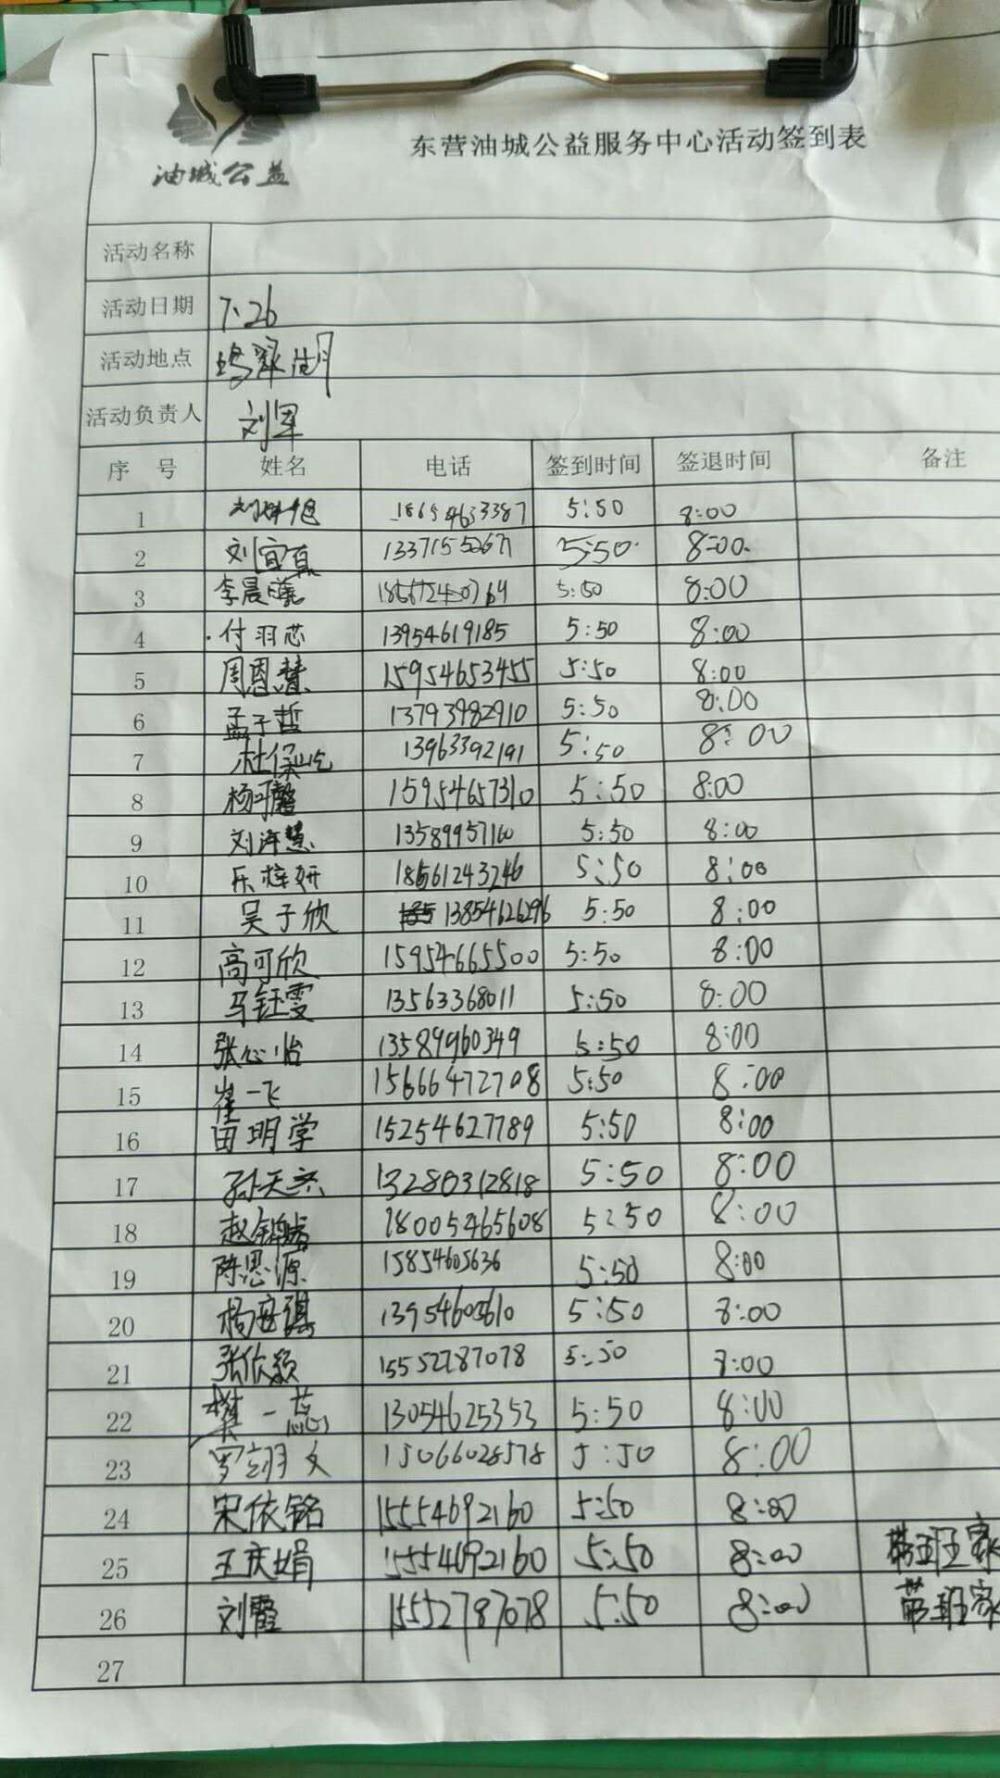 油城公益
东营油城公益服务中心活动签到表
活动名称
活动日期 7.26
活动地点 湖
活动负责人 刘军
序号 姓名 电话 签到时间 签退时间 备注
1 18654633387 5:50 8:00
2 刘宜真 5:50 8:00
3 李晨曦 5:50 8:00
4 付羽芯 13954619185 5:50 8:00
5 周恩慧 15954653455 5:50 8:00
6 孟子哲 13793982910 5:50 8:00
7 杜保屹 13963392191 5:50 8:00
8 杨可馨 15954657310 5:50 8:00
9 刘沛慧 13589957160 5:50 8:00
10 乐梓妍 18661243246 5:50 8:00
11 吴子欣 13854626296 5:50 8:00
12 高可欣 15954665500 5:50 8:00
13 马钰雯 13563368011 5:50 8:00
14 张心怡 13589960349 5:50 8:00
15 崔一飞 15666472708 5:50 8:00
16 田明学 15254627789 5:50 8:00
17 孙天 13280312818 5:50 8:00
18 赵 18005465608 5:50 8:00
19 陈思源 15854605636 5:50 8:00
20 杨安琪 13954605610 5:50 8:00
21 张欣颖 15552787078 5:50 8:00
22 樊一蕊 13054625353 5:50 8:00
23 罗翊文 15066028578 5:50 8:00
24 宋依铭 15554692160 5:50 8:00
25 王庆娟 15554692160 5:50 8:00 带班家
26 刘霞 15552787078 5:50 8:00 带班家
27